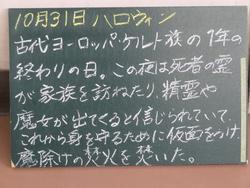 10月31日ハロウィン
古代ヨーロッパ・ケルト族の1年の
終わりの日。この夜は死者の霊
が家族を訪ねたり、精霊や
魔女が出てくると信じられていて、
これから身を守るために仮面をつけ
魔除けの焚火を焚いた。